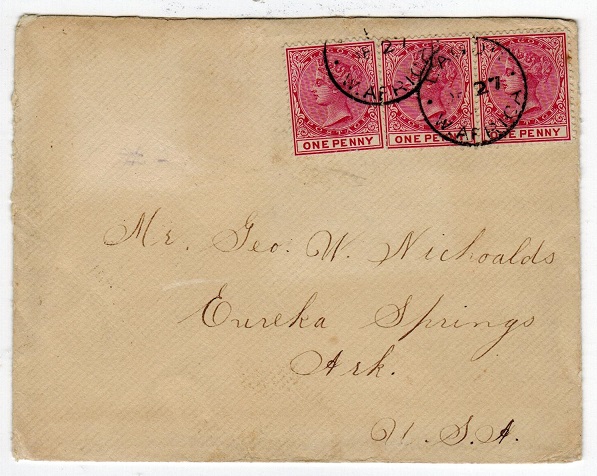 POSTAGE POSTAGE POSTAGE
ONE PENNY ONE PENNY ONE PENNY
27
W. AFRICA
27
W. AFRICA
Mr. Geo. W. Nichoalds
Eureka Springs
Ark.
U.S.A.